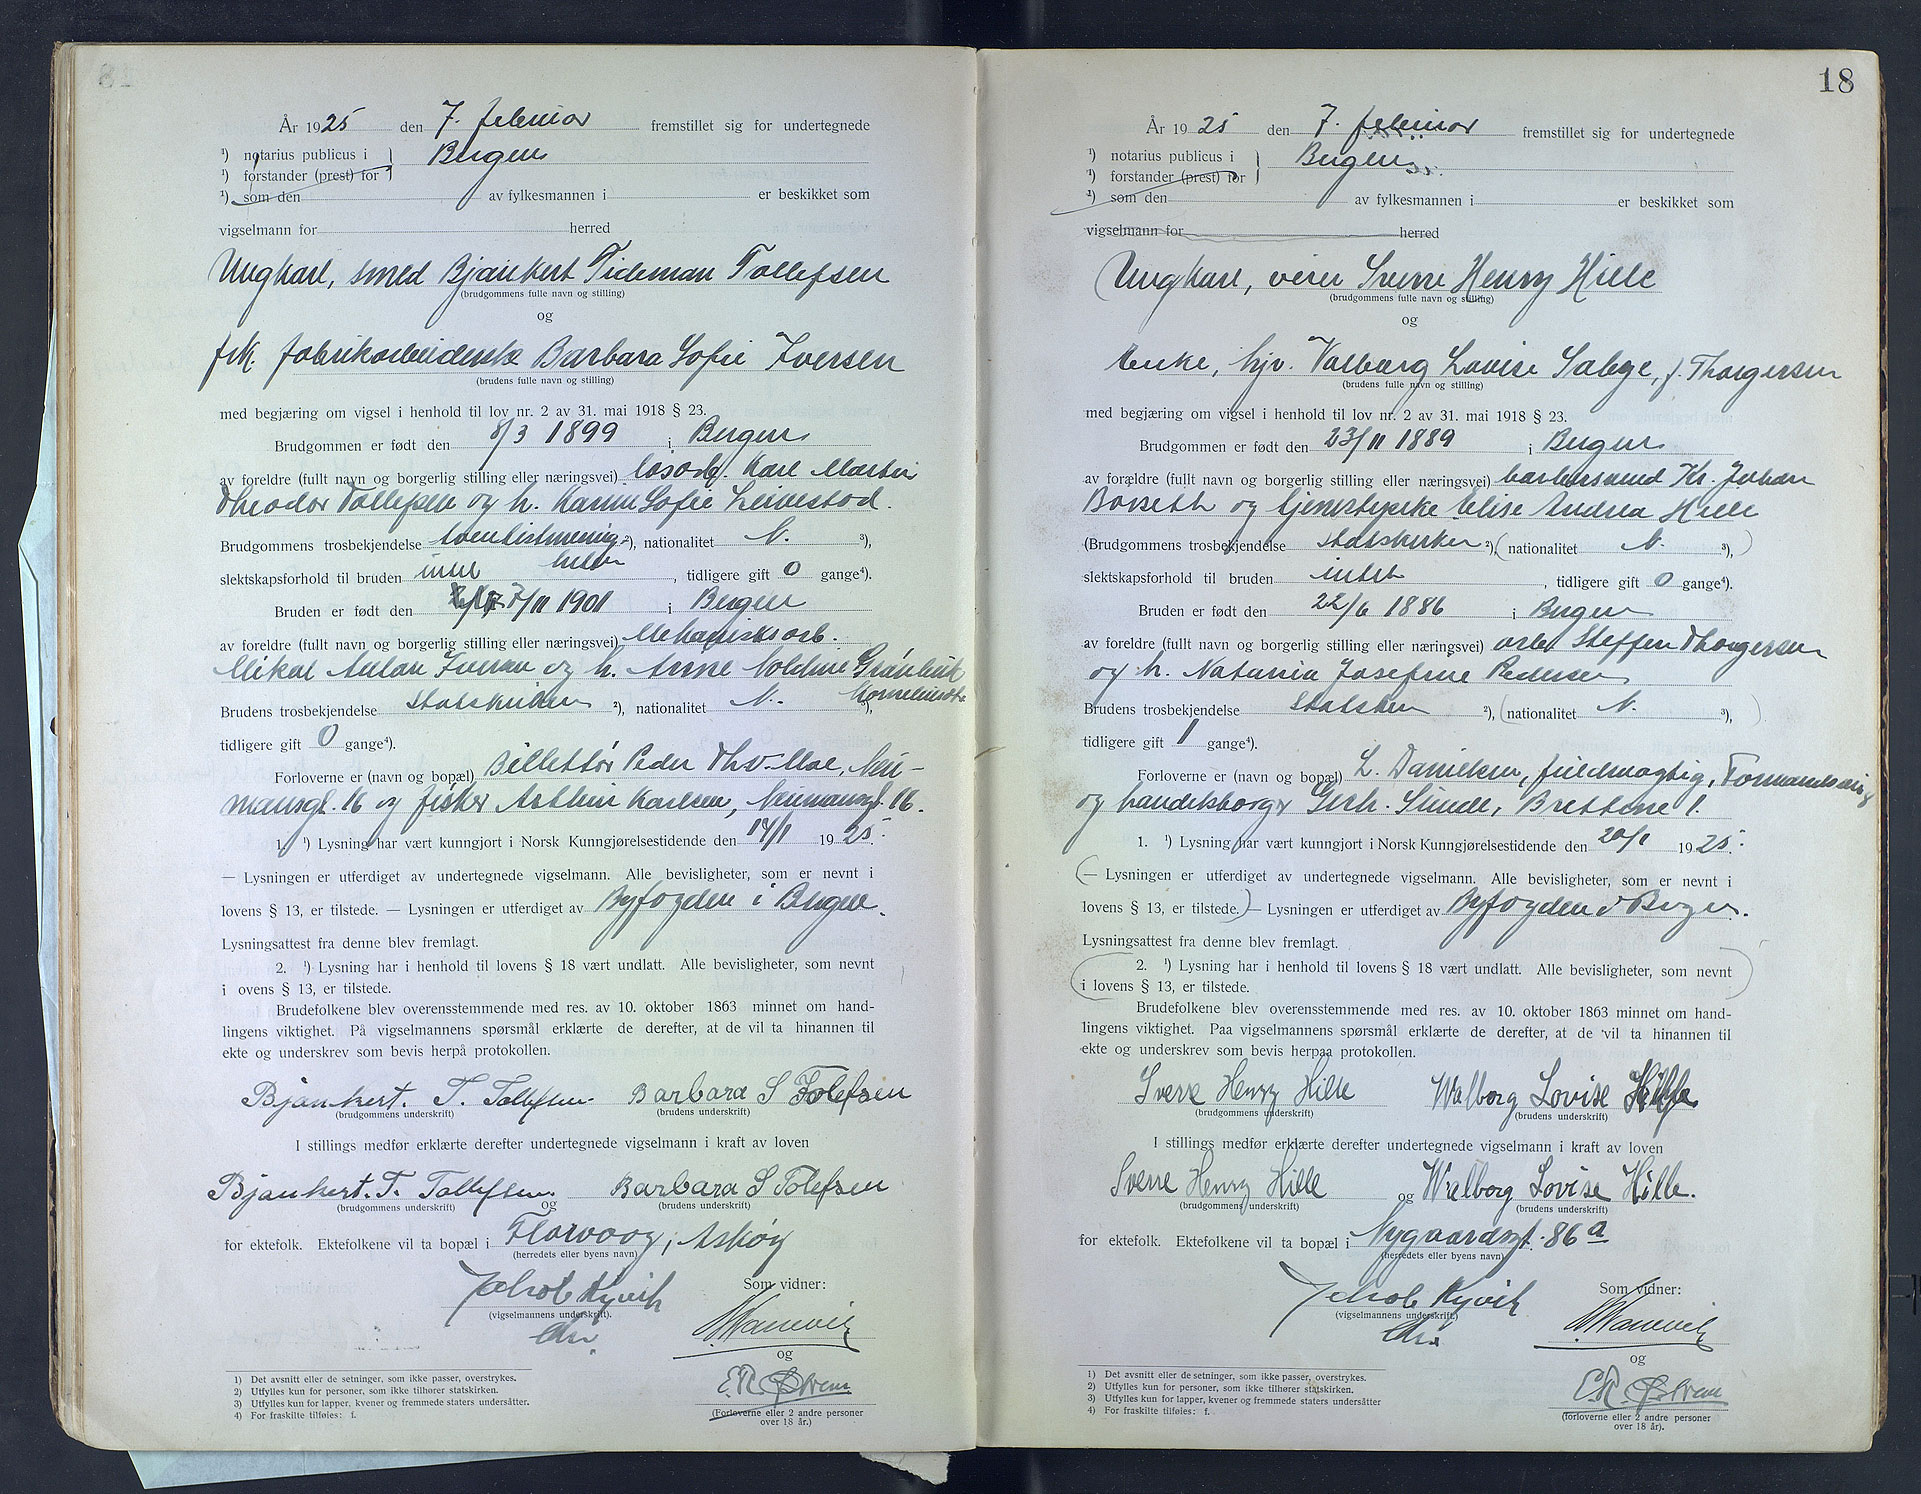 År 1925 den 7. februar fremstillet sig for undertegnede
¹) notarius publicus i Bergen
¹) forstander (prest) for
¹) som den av fylkesmannen i er beskikket som
vigselmann for herred
Ungkarl, smed Bjankert Tideman Tollefsen
(brudgommens fulle navn og stilling)
og
frk. fabrikarbeiderske Barbara Sofie Iversen
(brudens fulle navn og stilling)
med begjæring om vigsel i henhold til lov nr. 2 av 31. mai 1918 § 23.
Brudgommen er født den 8/3 1899 i Bergen
av foreldre (fullt navn og borgerlig stilling eller næringsvei) løsarb. Karl Martin
Theodor Tollefsen og h. Karen Sofie Leivestad.
Brudgommens trosbekjendelse ²), nationalitet N. ³),
slektskapsforhold til bruden intet, tidligere gift 0 gange⁴).
Bruden er født den 7/11 1901 i Bergen
av foreldre (fullt navn og borgerlig stilling eller næringsvei) Mekanisk arb.
Mikal Anton Iversen og h. Anne
Brudens trosbekjendelse statskirken ²), nationalitet N. ³),
tidligere gift 0 gange⁴).
Forloverne er (navn og bopæl) Billettør Peder Moe, Neu-
mansgt. 16 og fisker Arthur Karlsen, Neumansgt. 16.
1. ¹) Lysning har vært kunngjort i Norsk Kunngjørelsestidende den 14/1 1925.
— Lysningen er utferdiget av undertegnede vigselmann. Alle bevisligheter, som er nevnt i
lovens § 13, er tilstede. — Lysningen er utferdiget av Byfogden i Bergen.
Lysningsattest fra denne blev fremlagt.
2. ¹) Lysning har i henhold til lovens § 18 vært undlatt. Alle bevisligheter, som nevnt
i ovens § 13, er tilstede.
Brudefolkene blev overensstemmende med res. av 10. oktober 1863 minnet om hand-
lingens viktighet. På vigselmannens spørsmål erklærte de derefter, at de vil ta hinannen til
ekte og underskrev som bevis herpå protokollen.
Bjankert. T. Tollefsen Barbara S Tolefsen
(brudgommens underskrift) (brudens underskrift)
I stillings medfør erklærte derefter undertegnede vigselmann i kraft av loven
Bjankert. T. Tollefsen og Barbara S Tolefsen
(brudgommens underskrift) (brudens underskrift)
for ektefolk. Ektefolkene vil ta bopæl i Florvaag, Askøy
(herredets eller byens navn)
Jakob Kyvik Som vidner:
(vigselmannens underskrift).
og
(Forloverne eller 2 andre personer
over 18 år.)
1) Det avsnitt eller de setninger, som ikke passer, overstrykes.
2) Utfylles kun for personer, som ikke tilhører statskirken.
3) Utfylles kun for lapper, kvener og fremmede staters undersåtter.
4) For fraskilte tilføies: f.
18
År 1925 den 7. februar fremstillet sig for undertegnede
¹) notarius publicus i Bergen
¹) forstander (prest) for
¹) som den av fylkesmannen i er beskikket som
vigselmann for herred
Ungkarl, Sverre Henry Hille
(brudgommens fulle navn og stilling)
og
Enke, hjv. Valborg Lovise Sælege, f. Thorgersen
(brudens fulle navn og stilling)
med begjæring om vigsel i henhold til lov nr. 2 av 31. mai 1918 § 23.
Brudgommen er født den 23/11 1889 i Bergen
av forældre (fullt navn og borgerlig stilling eller næringsvei) barbersvend Kr. Johan
Borseth og tjenestepike Elise Andrea Hille
(Brudgommens trosbekjendelse statskirken ²), (nationalitet N. ³),)
slektskapsforhold til bruden intet, tidligere gift 0 gange⁴).
Bruden er født den 22/6 1886 i Bergen
av foreldre (fullt navn og borgerlig stilling eller næringsvei) arb. Steffen Thorgersen
og h. Natania Josefine Pedersen
Brudens trosbekjendelse statskirken ²), (nationalitet N. ³),)
tidligere gift 1 gange⁴).
Forloverne er (navn og bopæl) L. Danielsen, fuldmægtig,
og handelsborger Gerh. Sunde, 1.
1. ¹) Lysning har vært kunngjort i Norsk Kunngjørelsestidende den 20/1 1925.
(— Lysningen er utferdiget av undertegnede vigselmann. Alle bevisligheter, som er nevnt i
lovens § 13, er tilstede.)— Lysningen er utferdiget av Byfogden i Bergen.
Lysningsattest fra denne blev fremlagt.
(2. ¹) Lysning har i henhold til lovens § 18 vært undlatt. Alle bevisligheter, som nevnt
i lovens § 13, er tilstede.)
Brudefolkene blev overensstemmende med res. av 10. oktober 1863 minnet om hand-
lingens viktighet. Paa vigselmannens spørsmål erklærte de derefter, at de vil ta hinannen til
ekte og underskrev som bevis herpaa protokollen.
Sverre Henry Hille Walborg Lovise Hille
(brudgommens underskrift) (brudens underskrift)
I stillings medfør erklærte derefter undertegnede vigselmann i kraft av loven
Sverre Henry Hille og Walborg Lovise Hille.
(brudgommens underskrift) (brudens underskrift)
for ektefolk. Ektefolkene vil ta bopæl i Nygaardsgt. 86 a
(herredets eller byens navn)
Jakob Kyvik Som vidner:
(vigselmannens underskrift.)
og
(forloverne eller 2 andre personer
over 18 år).
1) Det avsnitt eller de setninger, som ikke passer, overstrykes.
2) Utfylles kun for personer, som ikke tilhører statskirken.
3) Utfylles kun for lapper, kvener og fremmede staters undersåtter
4) For fraskilte tilføies: f.